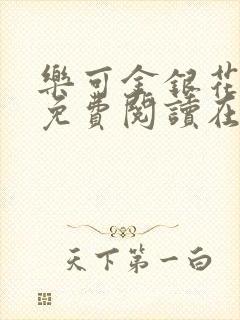 樂可金銀花
免費閱讀在
天下第一白